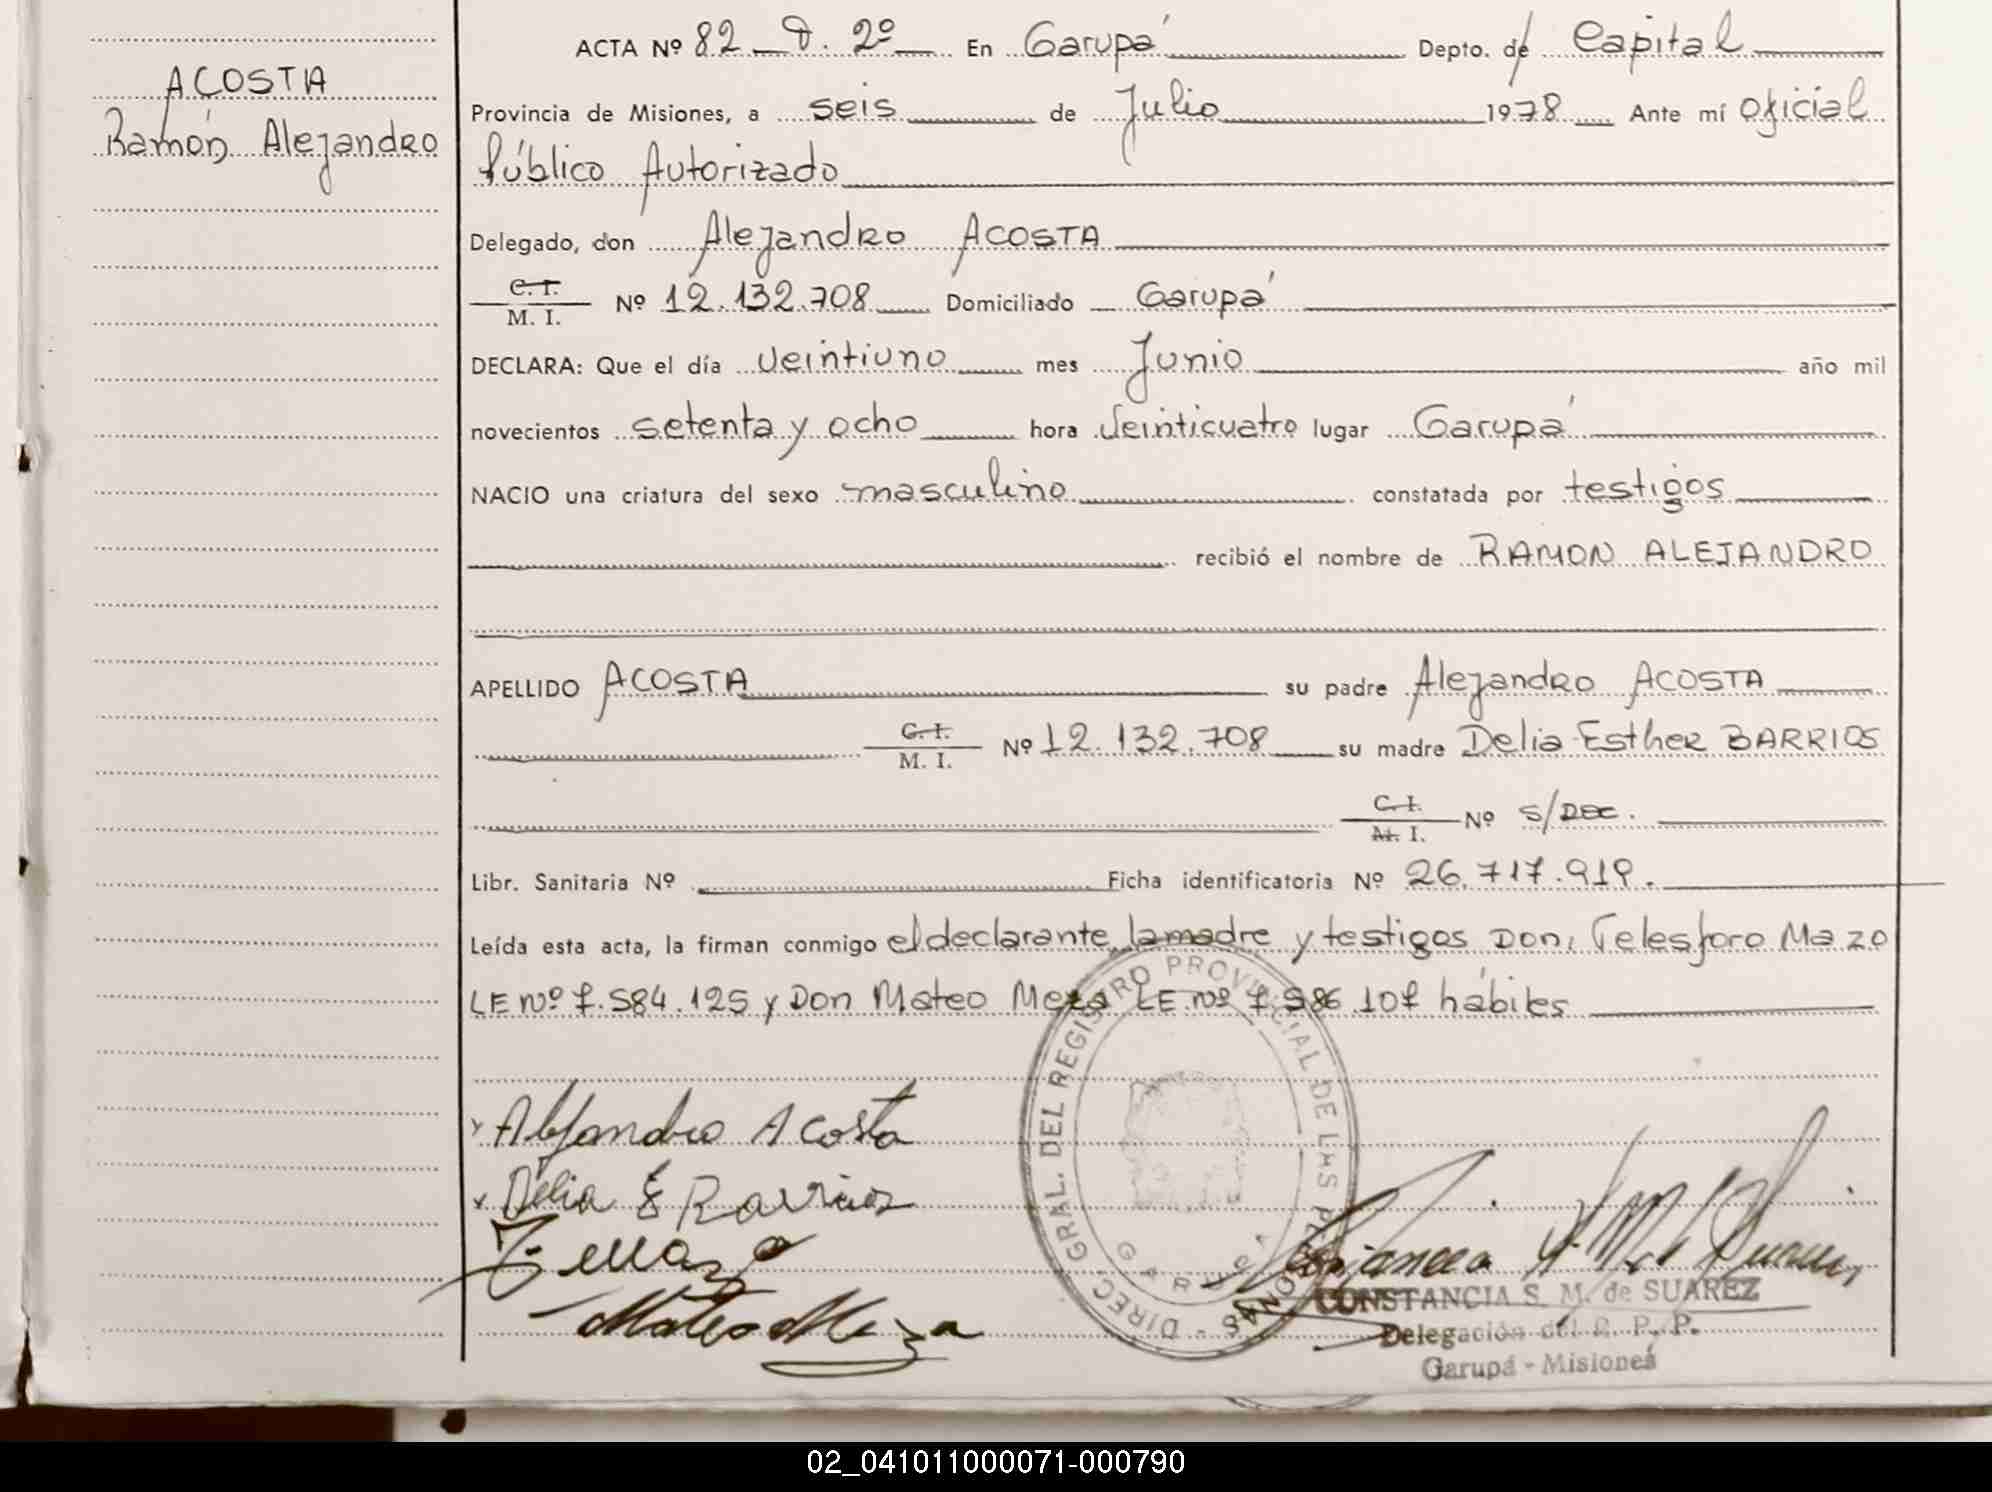 ACOSTA
Ramón Alejandro
ACTA Nº 82 D. 2º En Garupá Depto. de Capital
Provincia de Misiones, a seis de Julio 1978 Ante mí Oficial
Público Autorizado
Delegado, don Alejandro ACOSTA
C. I.
M. I. Nº 12.132.708 Domiciliado Garupá
DECLARA: Que el día veintiuno mes Junio año mil
novecientos setenta y ocho hora veinticuatro lugar Garupá
NACIO una criatura del sexo masculino constatada por testigos
recibió el nombre de RAMON ALEJANDRO
APELLIDO ACOSTA su padre Alejandro ACOSTA
C. I.
M. I. Nº 12.132.708 su madre Delia Esther BARRIOS
C. I.
M. I. Nº S/DEC.
Libr. Sanitaria Nº Ficha identificatoria Nº 26.717.919.
Leída esta acta, la firman conmigo el declarante, la madre y testigos Don, Telesforo Mazo
LE Nº 7.584.125 y Don Mateo Meza LE Nº 7.586.107 hábiles
Alejandro Acosta
Delia E Barrios
T. Mazo
Mateo Meza
DIREC. GRAL. DEL REGISTRO PROVINCIAL DE LAS PERSONAS
GARUPA
CONSTANCIA S. M. de SUAREZ
Delegación del R. P. P.
Garupá - Misiones
02_041011000071-000790